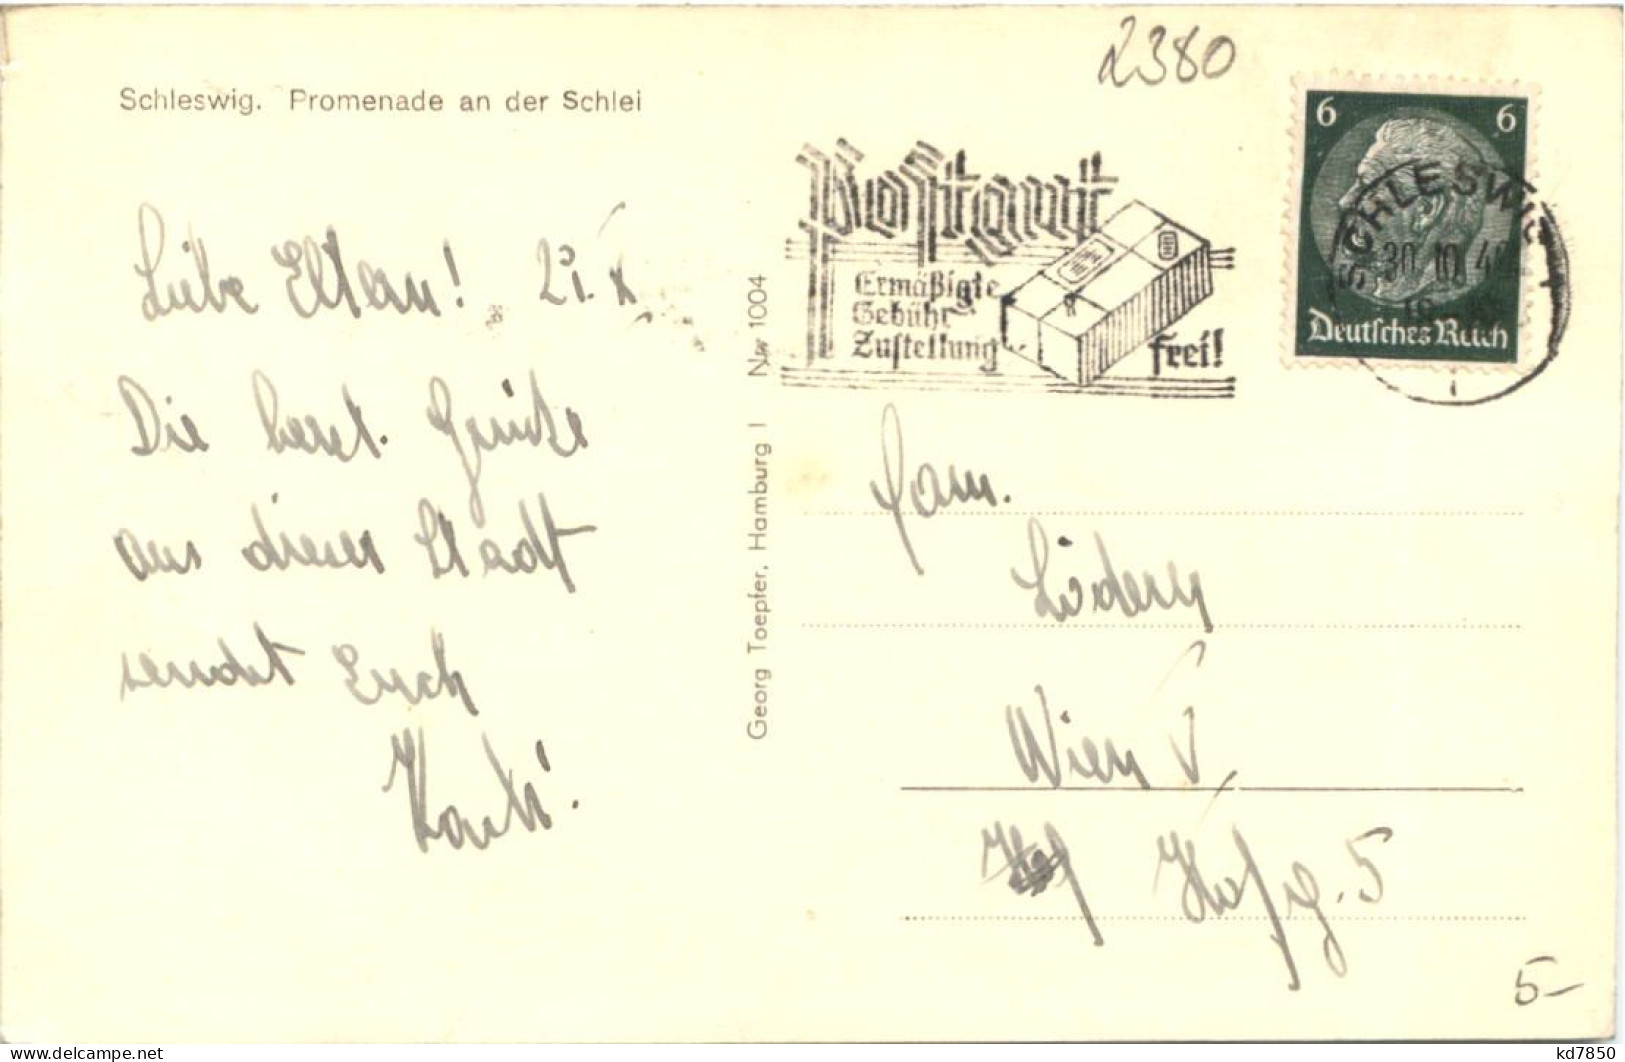 2380
Schleswig. Promenade an der Schlei
6 6
Deutsches Reich
SCHLESWIG 1
30.10.40
Postgut
Ermäßigte
Gebühr
Zustellung frei!
Liebe Eltern!
Die herzl. Grüße
aus dieser Stadt
sendet Euch
Georg Toepfer, Hamburg 1 Nr. 1004
Fam.
Wien V
Hofg. 5
5-
kd7850